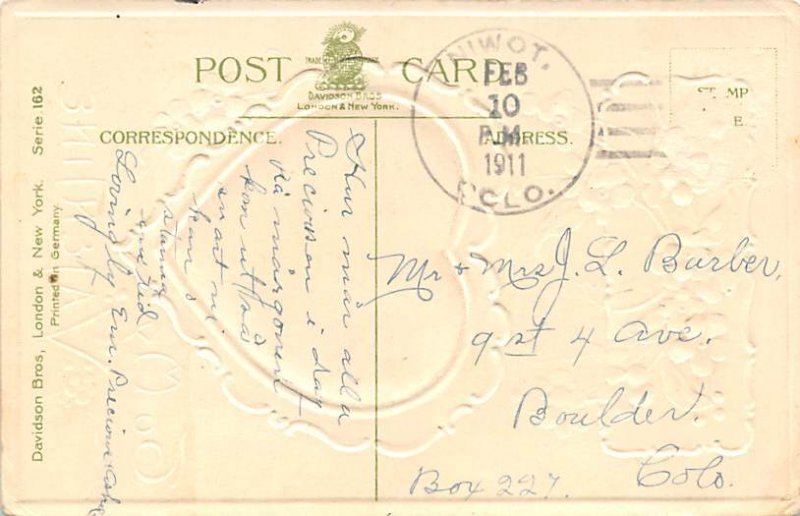 POST CARD
TRADE MARK
DAVIDSON BROS
LONDON & NEW YORK.
CORRESPONDENCE.
ADDRESS.
NIWOT,
FEB
10
P.M.
1911
COLO.
Davidson Bros, London & New York. Serie 162
Printed in Germany
Hur mår alla
Preciosen i dag
På mårgonen
kom ut så
en att ni
kan
stanna
Loving by Em. Precious
Mr & Mrs J. L. Barber,
9st 4 ave.
Boulder.
Colo.
Box 227.